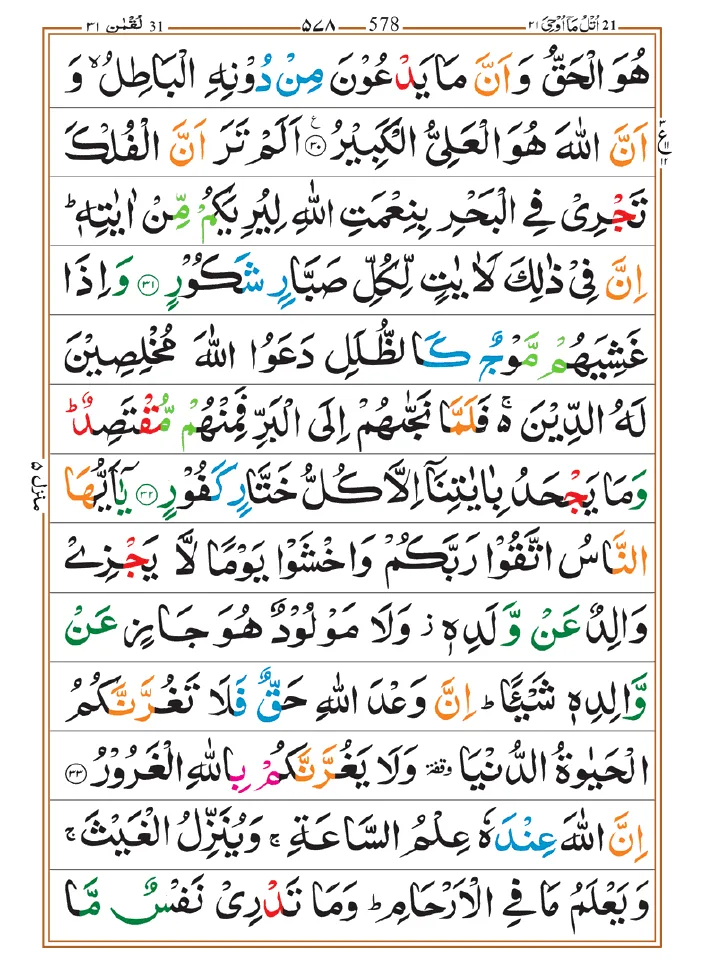 21 اُتْلُ مَاۤ اُوْحِیَ ٢١ 578 ٥٧٨ 31 لُقْمٰن ٣١
هُوَ الْحَقُّ وَاَنَّ مَا يَدْعُوْنَ مِنْ دُوْنِهِ الْبَاطِلُ ۙ وَ
اَنَّ اللّٰهَ هُوَ الْعَلِيُّ الْكَبِيْرُ ﴿٣٠﴾ اَلَمْ تَرَ اَنَّ الْفُلْكَ
تَجْرِيْ فِي الْبَحْرِ بِنِعْمَتِ اللّٰهِ لِيُرِيَكُمْ مِّنْ اٰيٰتِهٖ ؕ
اِنَّ فِيْ ذٰلِكَ لَاٰيٰتٍ لِّكُلِّ صَبَّارٍ شَكُوْرٍ ﴿٣١﴾ وَاِذَا
غَشِيَهُمْ مَّوْجٌ كَالظُّلَلِ دَعَوُا اللّٰهَ مُخْلِصِيْنَ
لَهُ الدِّيْنَ ۚ۬ فَلَمَّا نَجّٰىهُمْ اِلَى الْبَرِّ فَمِنْهُمْ مُّقْتَصِدٌ ؕ
وَمَا يَجْحَدُ بِاٰيٰتِنَاۤ اِلَّا كُلُّ خَتَّارٍ كَفُوْرٍ ﴿٣٢﴾ يٰۤاَيُّهَا
النَّاسُ اتَّقُوْا رَبَّكُمْ وَاخْشَوْا يَوْمًا لَّا يَجْزِيْ
وَالِدٌ عَنْ وَّلَدِهٖ ؗ وَلَا مَوْلُوْدٌ هُوَ جَازٍ عَنْ
وَّالِدِهٖ شَيْـًٔا ؕ اِنَّ وَعْدَ اللّٰهِ حَقٌّ فَلَا تَغُرَّنَّكُمُ
الْحَيٰوةُ الدُّنْيَا وقفة وَلَا يَغُرَّنَّكُمْ بِاللّٰهِ الْغَرُوْرُ ﴿٣٣﴾
اِنَّ اللّٰهَ عِنْدَهٗ عِلْمُ السَّاعَةِ ۚ وَيُنَزِّلُ الْغَيْثَ ۚ
وَيَعْلَمُ مَا فِي الْاَرْحَامِ ؕ وَمَا تَدْرِيْ نَفْسٌ مَّا
منزل ٥